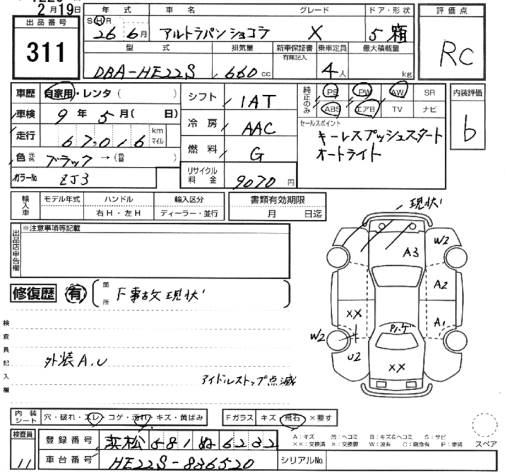 2月19日
出品番号
311
年式
SH
26年6月
車名
アルトラパンショコラ
グレード
X
ドア・形状
5 箱
型式
DBA-HE22S
排気量
660 cc
新車保証書
有 限記入
乗車定員
4人
最大積載量
kg
評価点
RC
車歴 自家用・レンタ( )
車検 9年5月( 日)
走行 67,016 km マイル
色 ブラック→( )
カラーNo ZJ3
シフト IAT
冷房 AAC
燃料 G
リサイクル料金 9070円
純正のみ
PS PW AW SR
ABS エアB TV ナビ
セールスポイント
キーレスプッシュスタート
オートライト
内装評価
b
輸入車
モデル年式
ハンドル
右H・左H
輸入区分
ディーラー・並行
書類有効期限
月 日迄
出品店申告欄
※注意事項等記載
修復歴 有
箇所
F事故現状
検査員記入欄
外装A.U
アイドルストップ点滅
現状
A3
W2
A2
XX
A1
W2
U2
XX
内装シート 穴・破れ・スレ・コゲ・汚れ・キズ・黄ばみ
Fガラス キズ 飛石 ×要す
A:キズ
スペア
検査員
11
登録番号 浜松 581 ぬ 6232
車台番号 HE22S-836520
シリアルNo.